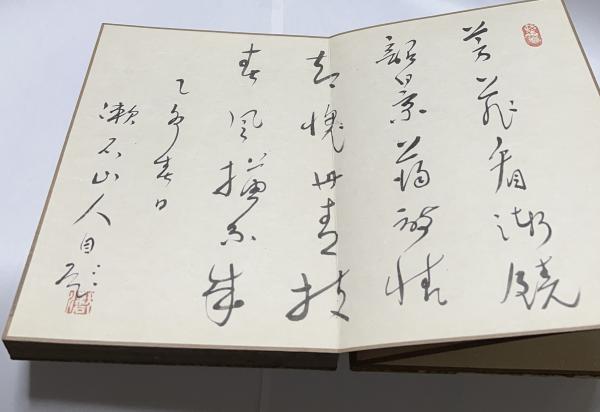 芳菲看漸饒
韶景蕩詩情
却愧丹青技
春風描不成
乙卯春日
漱石山人自題